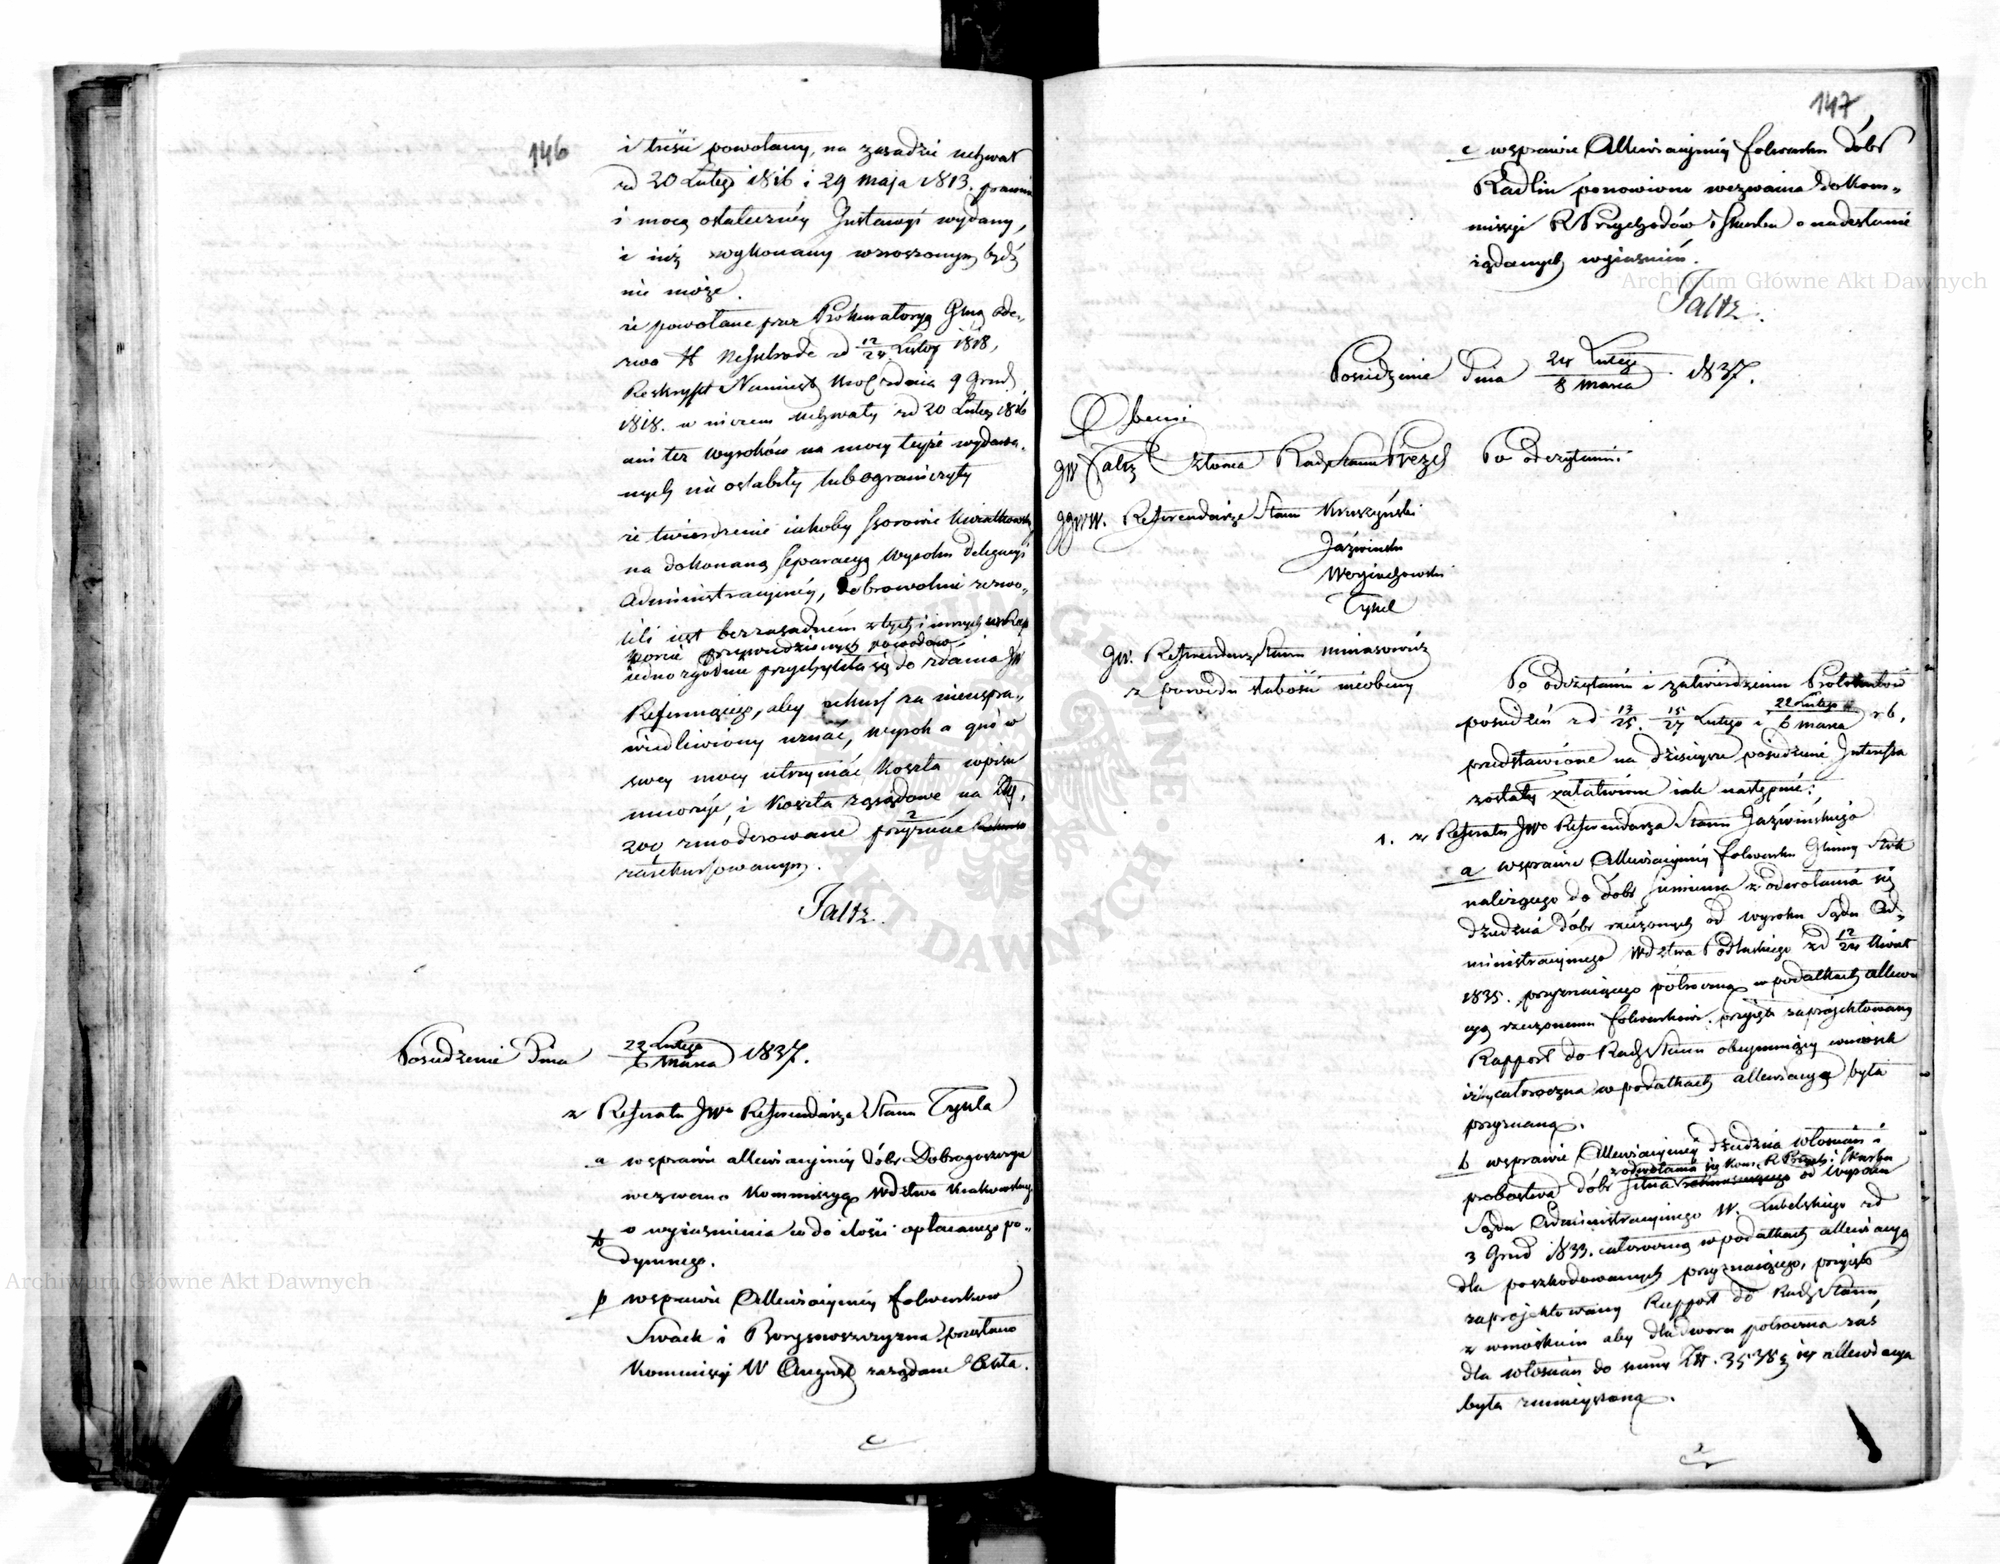 146
i treści powołany, na zasadzie uchwał
od 20 Lutego 1816 i 29 Maja 1813. prawem
i mocą ostateczney Instancyi wydany,
i iuż wykonany wzruszonym bydź
nie może.
że powołane przez Prokuratoryą Glną Ode-
zwa od 12/24 Lutego 1818,
Reskrypt Namiest. Krol. z dnia 9 Grud.
1818. w niczem uchwały od 20 Lutego 1816
ani też wyroków na mocy teyże wydawa-
nych nie osłabiły lub ograniczyły
że twierdzenie iakoby Ssorowie Kwiatkowscy
na dokonaną Separacyą Wyroku Delegacyi
Administracyiney, dobrowolnie zezwo-
lili iest bezzasadnem z tych i innych w Rap
porcie przywiedzionych powodów
iednozgodnie przychyliła się do zdania JW
Referuiącego, aby rekurs za nieuspra-
wiedliwiony uznać, wyrok a quo w
swey mocy utrzymać Koszta wpisu
umorzyć, i Koszta zgodowe na Złp.
200 zmoderowane przyznać
zarekursowanym.
Faltz.
Posiedzenie Dnia 22 Lutego/6 Marca 1837.
z Referatu JWo Referendarza Stanu Tykla
a w sprawie allewiacyiney Dóbr Dobrogoszczyce
wezwano Kommissyą Wdztwa Krakowskiego
o wyiaśnienia co do ilości opłacanego po-
dymnego.
b w sprawie Allewiacyiney folwarków
Swack i Borysowszczyzna przesłano
Kommissyi W August. zażądane Akta.
c
147
c w sprawie Allewiacyiney folwarku Dóbr
Radlin ponowiono wezwania do Kom-
missyi R Przychodów i Skarbu o nadesłanie
żądanych wyiaśnień.
Faltz.
Posiedzenie Dnia 24 Lutego/8 Marca 1837.
Obecni
JW Faltz Członek Rady Stanu Prezes Po odczytaniu
JJWW. Referendarze Stanu Kruszyński
Jaźwiński
Woyciechowski
Tykel
JW. Referendarz Stanu Minasowicz
z powodu słabości nieobecny
Po odczytaniu i zatwierdzeniu Protokułów
posiedzeń z d 13/25. 15/27 Lutego i 22 Lutego/6 Marca r b,
przedstawione na dzisieysze posiedzenie Interessa
zostały załatwione iak następuie:
1. z Referatu JWo Referendarza Stanu Jaźwińskiego
a w sprawie Allewiacyiney folwarku
należącego do Dóbr z odwołania się
dziedzica Dóbr rzeczonych od wyroku Sądu Ad-
ministracyinego Wdztwa Podlaskiego z d 12/24 Kwiet
1835. przyznaiącego półroczną w podatkach allewia
cyą rzeczonemu folwarkowi. przyięto zaproiektowany
Rapport do Rady Stanu obeymuiący wniosek
iżby całoroczna w podatkach allewiacya była
przyznaną.
b w sprawie Allewiacyiney dziedzica włościan i
z odwołania się Kom. R Przych. i Skarbu
probostwa dóbr od wyroku
Sądu Administracyinego W. Lubelskiego z d
3 Grud 1833. całoroczną w podatkach allewiacyą
dla poszkodowanych przyznaiącego, przyięto
zaproiektowany Rapport do Rady Stanu
z wnioskiem aby dla dworu półroczna zaś
dla włościan do summy Złp. 3538 allewiacya
była zmnieyszoną.
2
Archiwum Główne Akt Dawnych
Archiwum Główne Akt Dawnych
ARCHIWUM GŁÓWNE AKT DAWNYCH